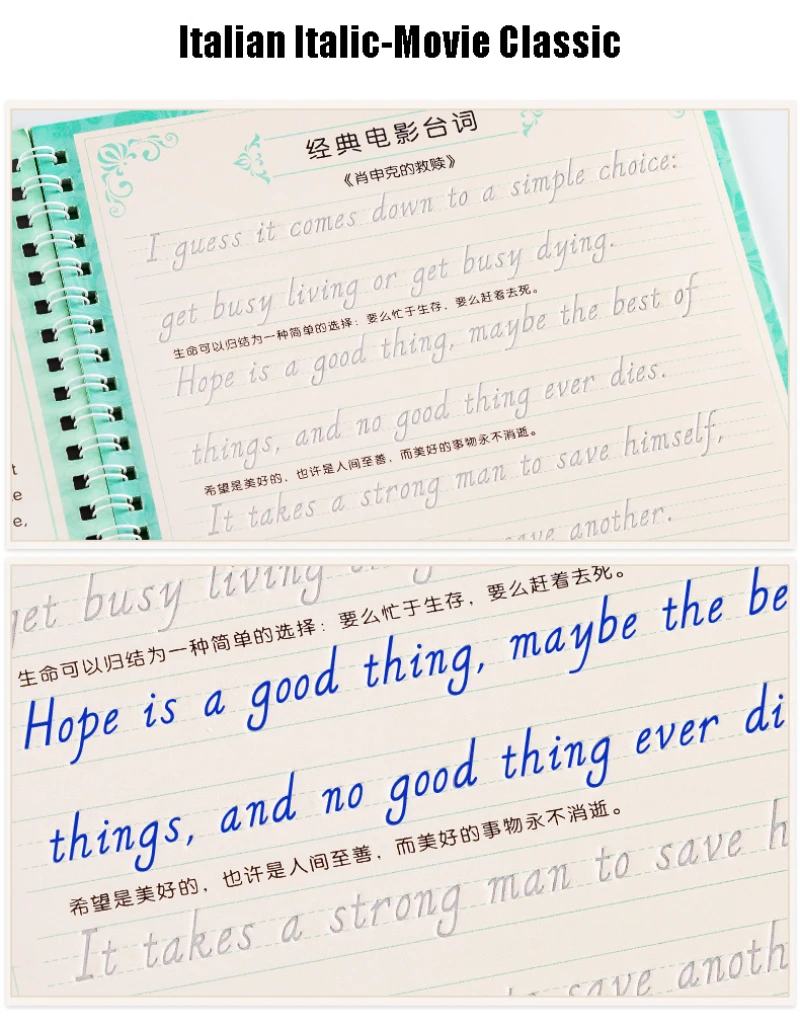 Italian Italic-Movie Classic
经典电影台词
《肖申克的救赎》
I guess it comes down to a simple choice:
get busy living or get busy dying.
生命可以归结为一种简单的选择：要么忙于生存，要么赶着去死。
Hope is a good thing, maybe the best of
things, and no good thing ever dies.
希望是美好的，也许是人间至善，而美好的事物永不消逝。
It takes a strong man to save himself,
save another.
t
e
e,
get busy living
生命可以归结为一种简单的选择：要么忙于生存，要么赶着去死。
Hope is a good thing, maybe the be
things, and no good thing ever di
希望是美好的，也许是人间至善，而美好的事物永不消逝。
It takes a strong man to save h
save anoth